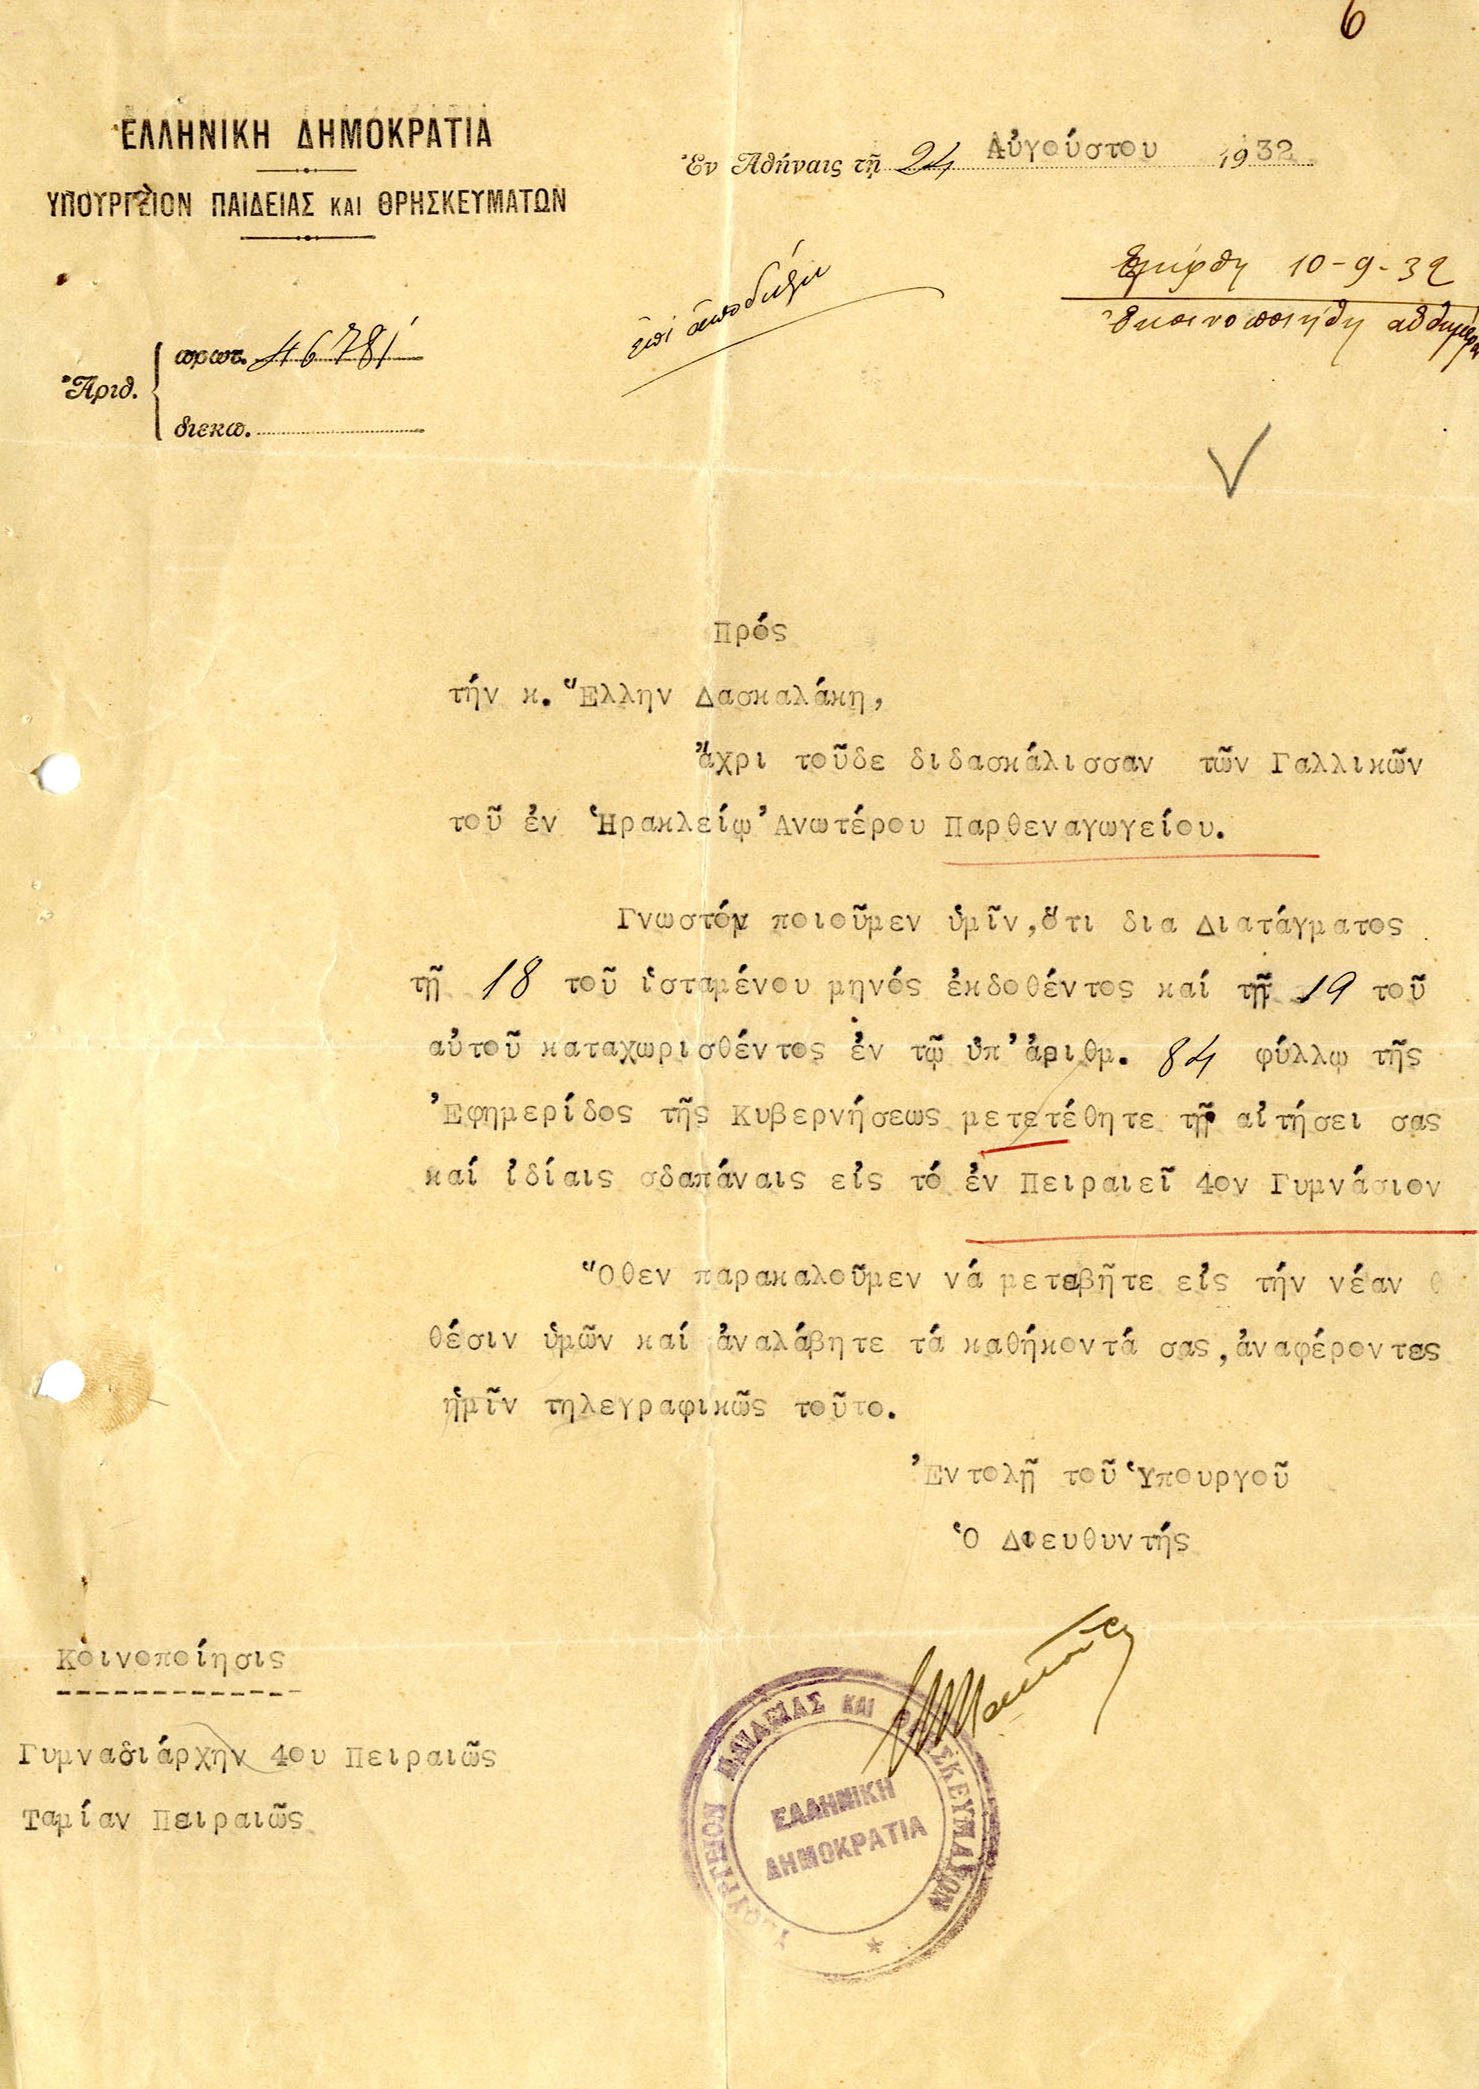 6
ΕΛΛΗΝΙΚΗ ΔΗΜΟΚΡΑΤΙΑ
ΥΠΟΥΡΓΕΙΟΝ ΠΑΙΔΕΙΑΣ ΚΑΙ ΘΡΗΣΚΕΥΜΑΤΩΝ
Ἐν Ἀθήναις τῇ 24 Αὐγούστου 1932
ἐπὶ ἀποδείξει
ἐλήφθη 10-9-32
ἐκοινοποιήθη αὐθημερόν
Ἀριθ.
πρωτ. 46781
διεκπ.
Πρός
τήν κ. Ἕλλην Δασκαλάκη,
ἄχρι τοῦδε διδασκάλισσαν τῶν Γαλλικῶν
τοῦ ἐν Ἡρακλείῳ Ἀνωτέρου Παρθεναγωγείου.
Γνωστόν ποιοῦμεν ὑμῖν, ὅτι δια Διατάγματος
τῇ 18 τοῦ ἱσταμένου μηνός ἐκδοθέντος καί τῇ 19 τοῦ
αὐτοῦ καταχωρισθέντος ἐν τῷ ὑπ' ἀριθμ. 84 φύλλῳ τῆς
Ἐφημερίδος τῆς Κυβερνήσεως μετετέθητε τῇ αἰτήσει σας
καί ἰδίαις σδαπάναις εἰς τό ἐν Πειραιεῖ 4ον Γυμνάσιον
Ὅθεν παρακαλοῦμεν νά μεταβῆτε εἰς τήν νέαν θ
θέσιν ὑμῶν καί ἀναλάβητε τά καθήκοντά σας, ἀναφέροντες
ἡμῖν τηλεγραφικῶς τοῦτο.
Ἐντολῇ τοῦ Ὑπουργοῦ
Ὁ Διευθυντής
Κοινοποίησις
Γυμνασιάρχην 4ου Πειραιῶς
Ταμίαν Πειραιῶς
ΥΠΟΥΡΓΕΙΟΝ ΠΑΙΔΕΙΑΣ ΚΑΙ ΘΡΗΣΚΕΥΜΑΤΩΝ
ΕΛΛΗΝΙΚΗ
ΔΗΜΟΚΡΑΤΙΑ